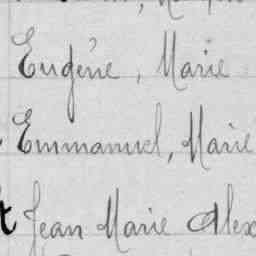 Eugène, Marie
Emmanuel, Marie
t Jean Marie Alex